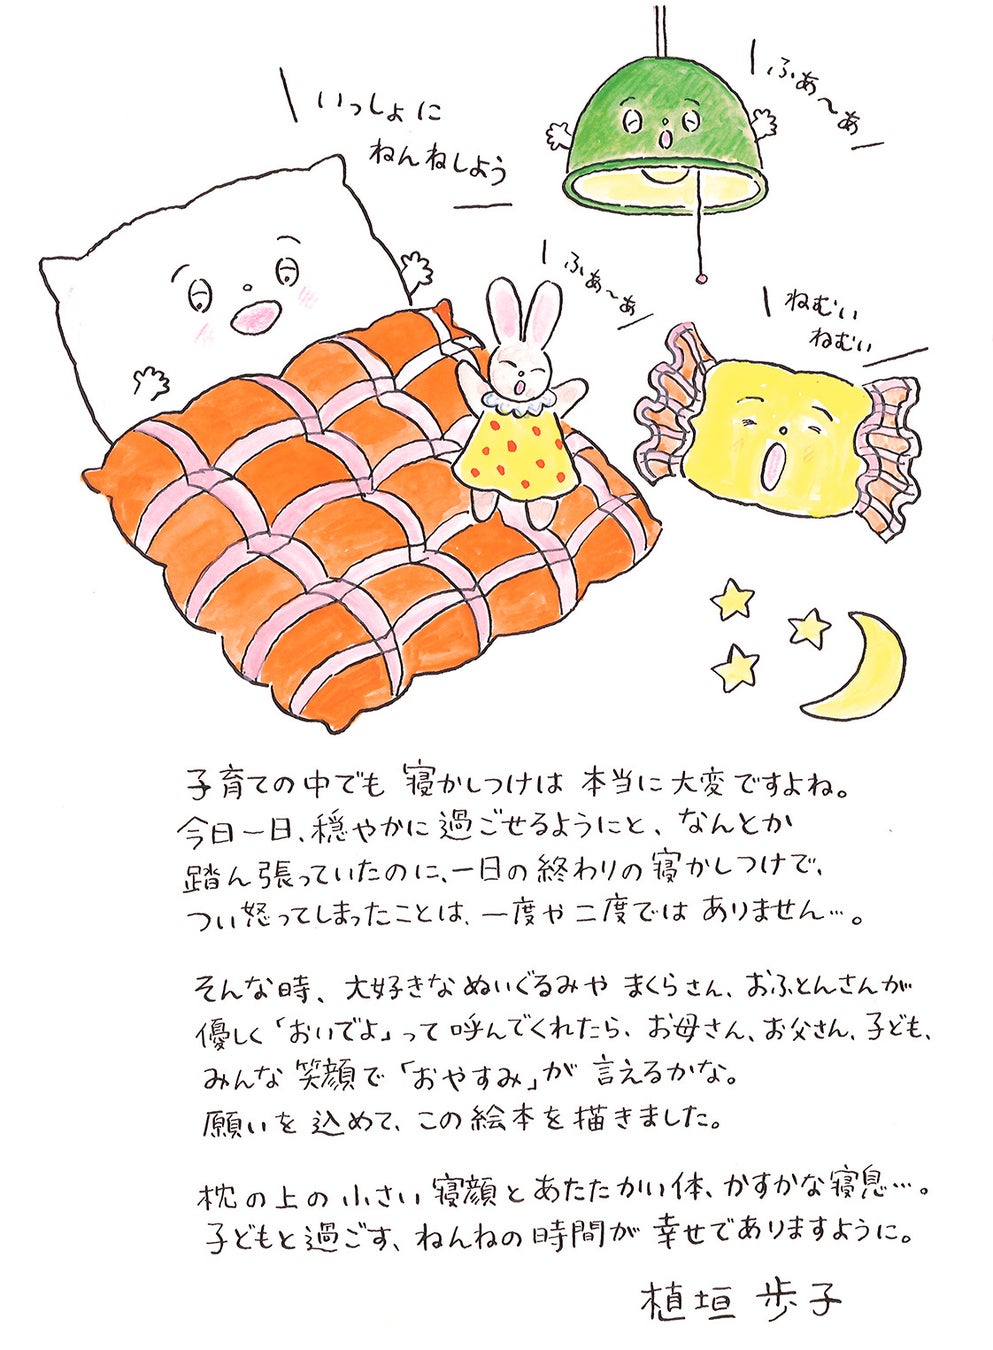 いっしょに
ねんねしよう
ふあ〜あ
ふあ〜あ
ねむい
ねむい
子育ての中でも 寝かしつけは 本当に大変ですよね。
今日一日、穏やかに過ごせるようにと、なんとか
踏ん張っていたのに、一日の終わりの寝かしつけで、
つい怒ってしまったことは、一度や二度ではありません…。
そんな時、大好きなぬいぐるみや まくらさん、おふとんさんが
優しく「おいでよ」って呼んでくれたら、お母さん、お父さん、子ども、
みんな笑顔で「おやすみ」が 言えるかな。
願いを込めて、この絵本を描きました。
枕の上の小さい寝顔とあたたかい体、かすかな寝息…。
子どもと過ごす、ねんねの時間が 幸せでありますように。
植垣 歩子